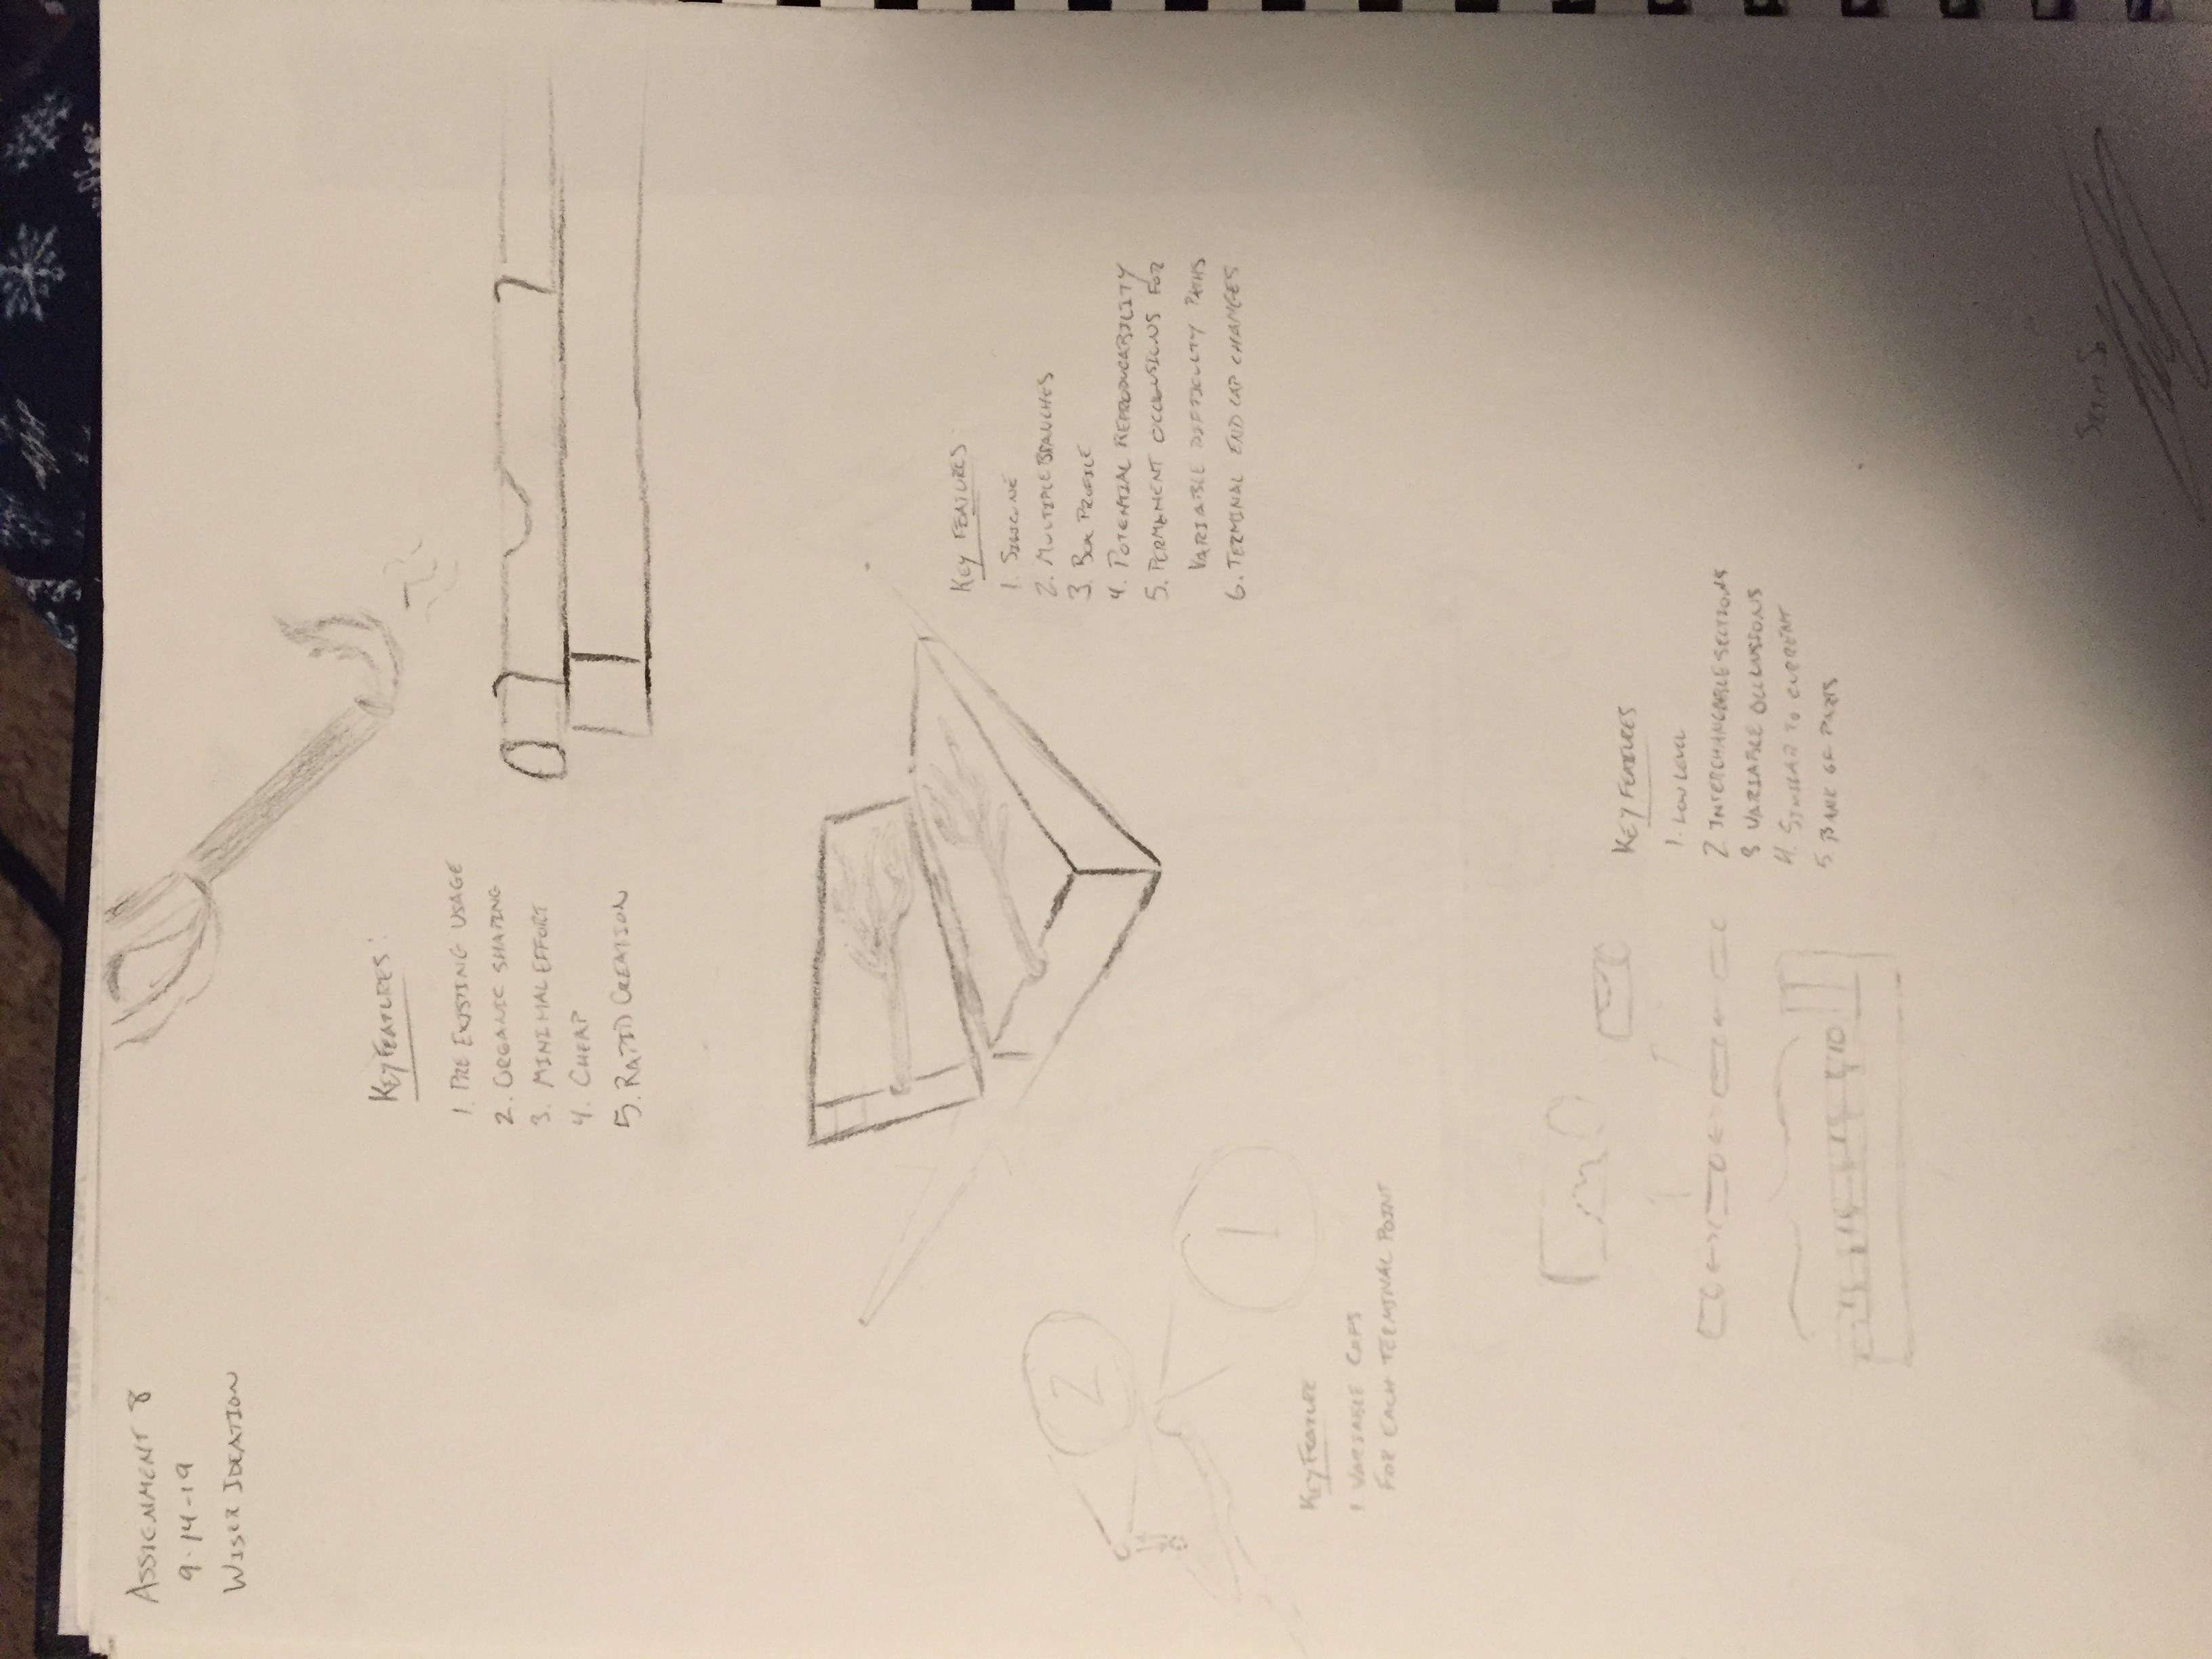 ASSIGNMENT 8
9-14-19
WISER IDEATION
KEY FEATURES:
1. PRE EXISTING USAGE
2. ORGANIC SHAPING
3. MINIMAL EFFORT
4. CHEAP
5. RAPID CREATION
KEY FEATURES:
1. SILICONE
2. MULTIPLE BRANCHES
3. BOX PROFILE
4. POTENTIAL REPRODUCABILITY
5. PERMANENT OCCLUSIONS FOR
VARIABLE DIFFICULTY PATHS
6. TERMINAL END CAP CHANGES
2
1
KEY FEATURE
1 VARIABLE CAPS
FOR EACH TERMINAL POINT
KEY FEATURES
1. LOW LEVEL
2 INTERCHANGABLE SECTIONS
3 VARIABLE OCCLUSIONS
4. SIMILAR TO CURRENT
5. BANK OF PARTS